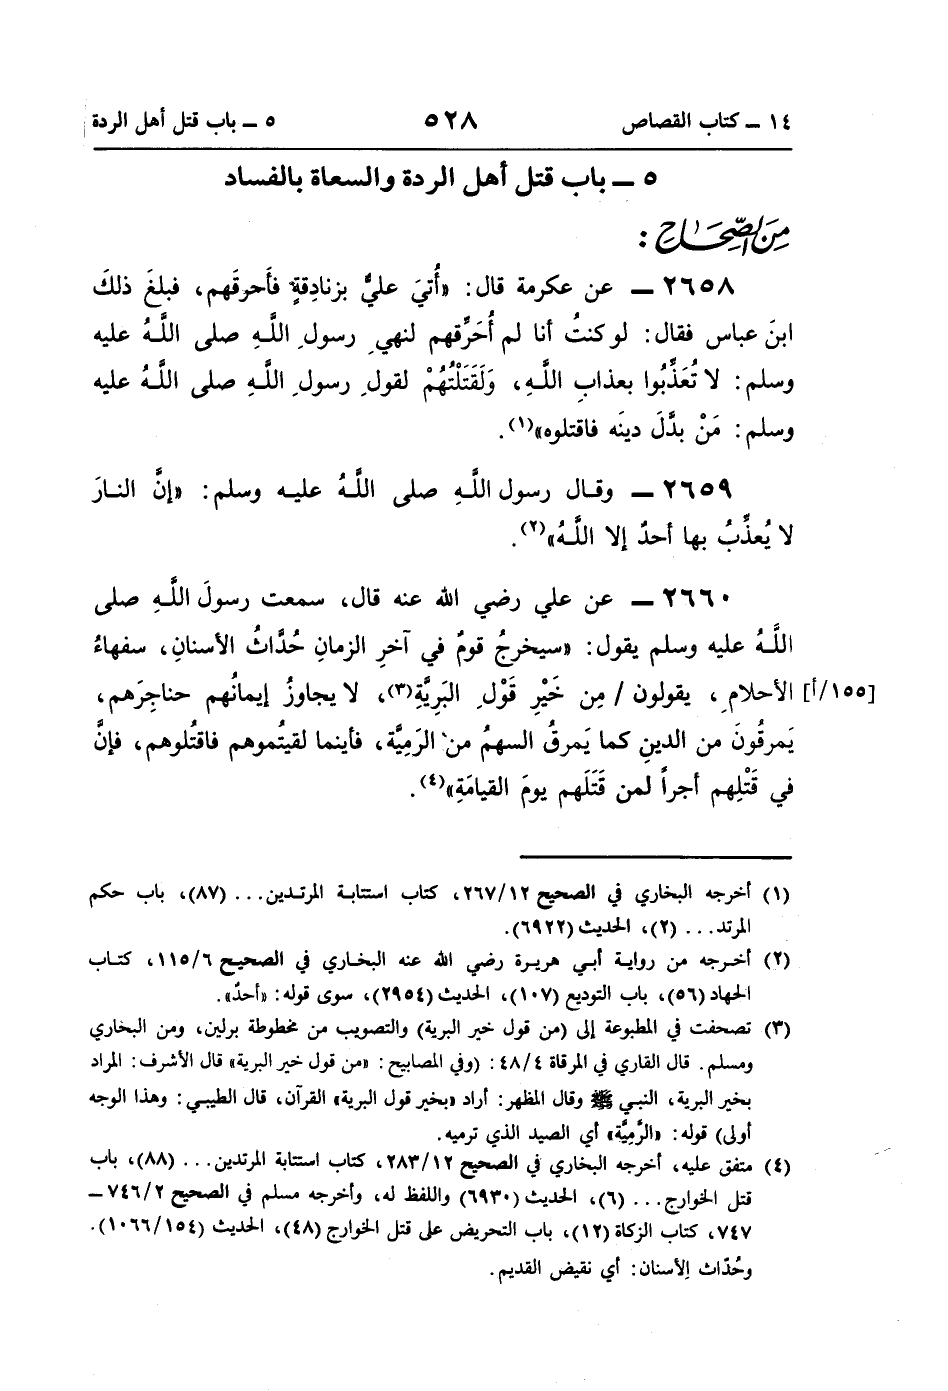 ١٤ ــ كتاب القصاص ٥٢٨ ٥ ــ باب قتل أهل الردة
٥ ــ باب قتل أهل الردة والسعاة بالفساد
مِنَ الصِّحَاحِ :
٢٦٥٨ ــ عن عكرمة قال: «أُتيَ عليٌّ بزنادِقةٍ فأَحرقَهم، فبلغَ ذلكَ
ابنَ عباس فقال: لو كنتُ أنا لم أُحَرِّقهم لنهيِ رسولِ اللَّهِ صلى اللَّهُ عليه
وسلم: لا تُعَذِّبُوا بعذابِ اللَّهِ، وَلَقَتَلْتُهُمْ لقولِ رسولِ اللَّهِ صلى اللَّهُ عليه
وسلم: مَنْ بدَّلَ دينَه فاقتلوه»(١).
٢٦٥٩ ــ وقال رسول اللَّهِ صلى اللَّهُ عليه وسلم: «إنَّ النارَ
لا يُعذِّبُ بها أحدٌ إلا اللَّهُ»(٢).
٢٦٦٠ ــ عن علي رضي الله عنه قال، سمعت رسولَ اللَّهِ صلى
اللَّهُ عليه وسلم يقول: «سيخرجُ قومٌ في آخرِ الزمانِ حُدَّاثُ الأسنانِ، سفهاءُ
[١٥٥/أ] الأحلامِ، يقولون / مِن خَيْرِ قَوْلِ البَرِيَّةِ(٣)، لا يجاوزُ إيمانُهم حناجِرَهم،
يَمرقُونَ من الدينِ كما يَمرقُ السهمُ من الرَمِيَّة، فأينما لقيتُموهم فاقتُلوهم، فإنَّ
في قَتْلِهم أجراً لمن قَتَلَهم يومَ القيامَةِ»(٤).
(١) أخرجه البخاري في الصحيح ٢٦٧/١٢، كتاب استتابة المرتدين... (٨٧)، باب حكم
المرتد... (٢)، الحديث (٦٩٢٢).
(٢) أخرجه من رواية أبي هريرة رضي الله عنه البخاري في الصحيح ١١٥/٦، كتاب
الجهاد (٥٦)، باب التوديع (١٠٧)، الحديث (٢٩٥٤)، سوى قوله: «أحدٌ».
(٣) تصحفت في المطبوعة إلى (من قول خير البرية) والتصويب من مخطوطة برلين، ومن البخاري
ومسلم. قال القاري في المرقاة ٤٨/٤: (وفي المصابيح: «من قول خير البرية» قال الأشرف: المراد
بخير البرية، النبي ﷺ وقال المظهر: أراد «بخير قول البرية» القرآن، قال الطيبي: وهذا الوجه
أولى) قوله: «الرَّمِيَّة» أي الصيد الذي ترميه.
(٤) متفق عليه، أخرجه البخاري في الصحيح ٢٨٣/١٢، كتاب استتابة المرتدين... (٨٨)، باب
قتل الخوارج... (٦)، الحديث (٦٩٣٠) واللفظ له، وأخرجه مسلم في الصحيح ٧٤٦/٢ ــ
٧٤٧، كتاب الزكاة (١٢)، باب التحريض على قتل الخوارج (٤٨)، الحديث (١٠٦٦/١٥٤).
وحُدّاث الأسنان: أي نقيض القديم.